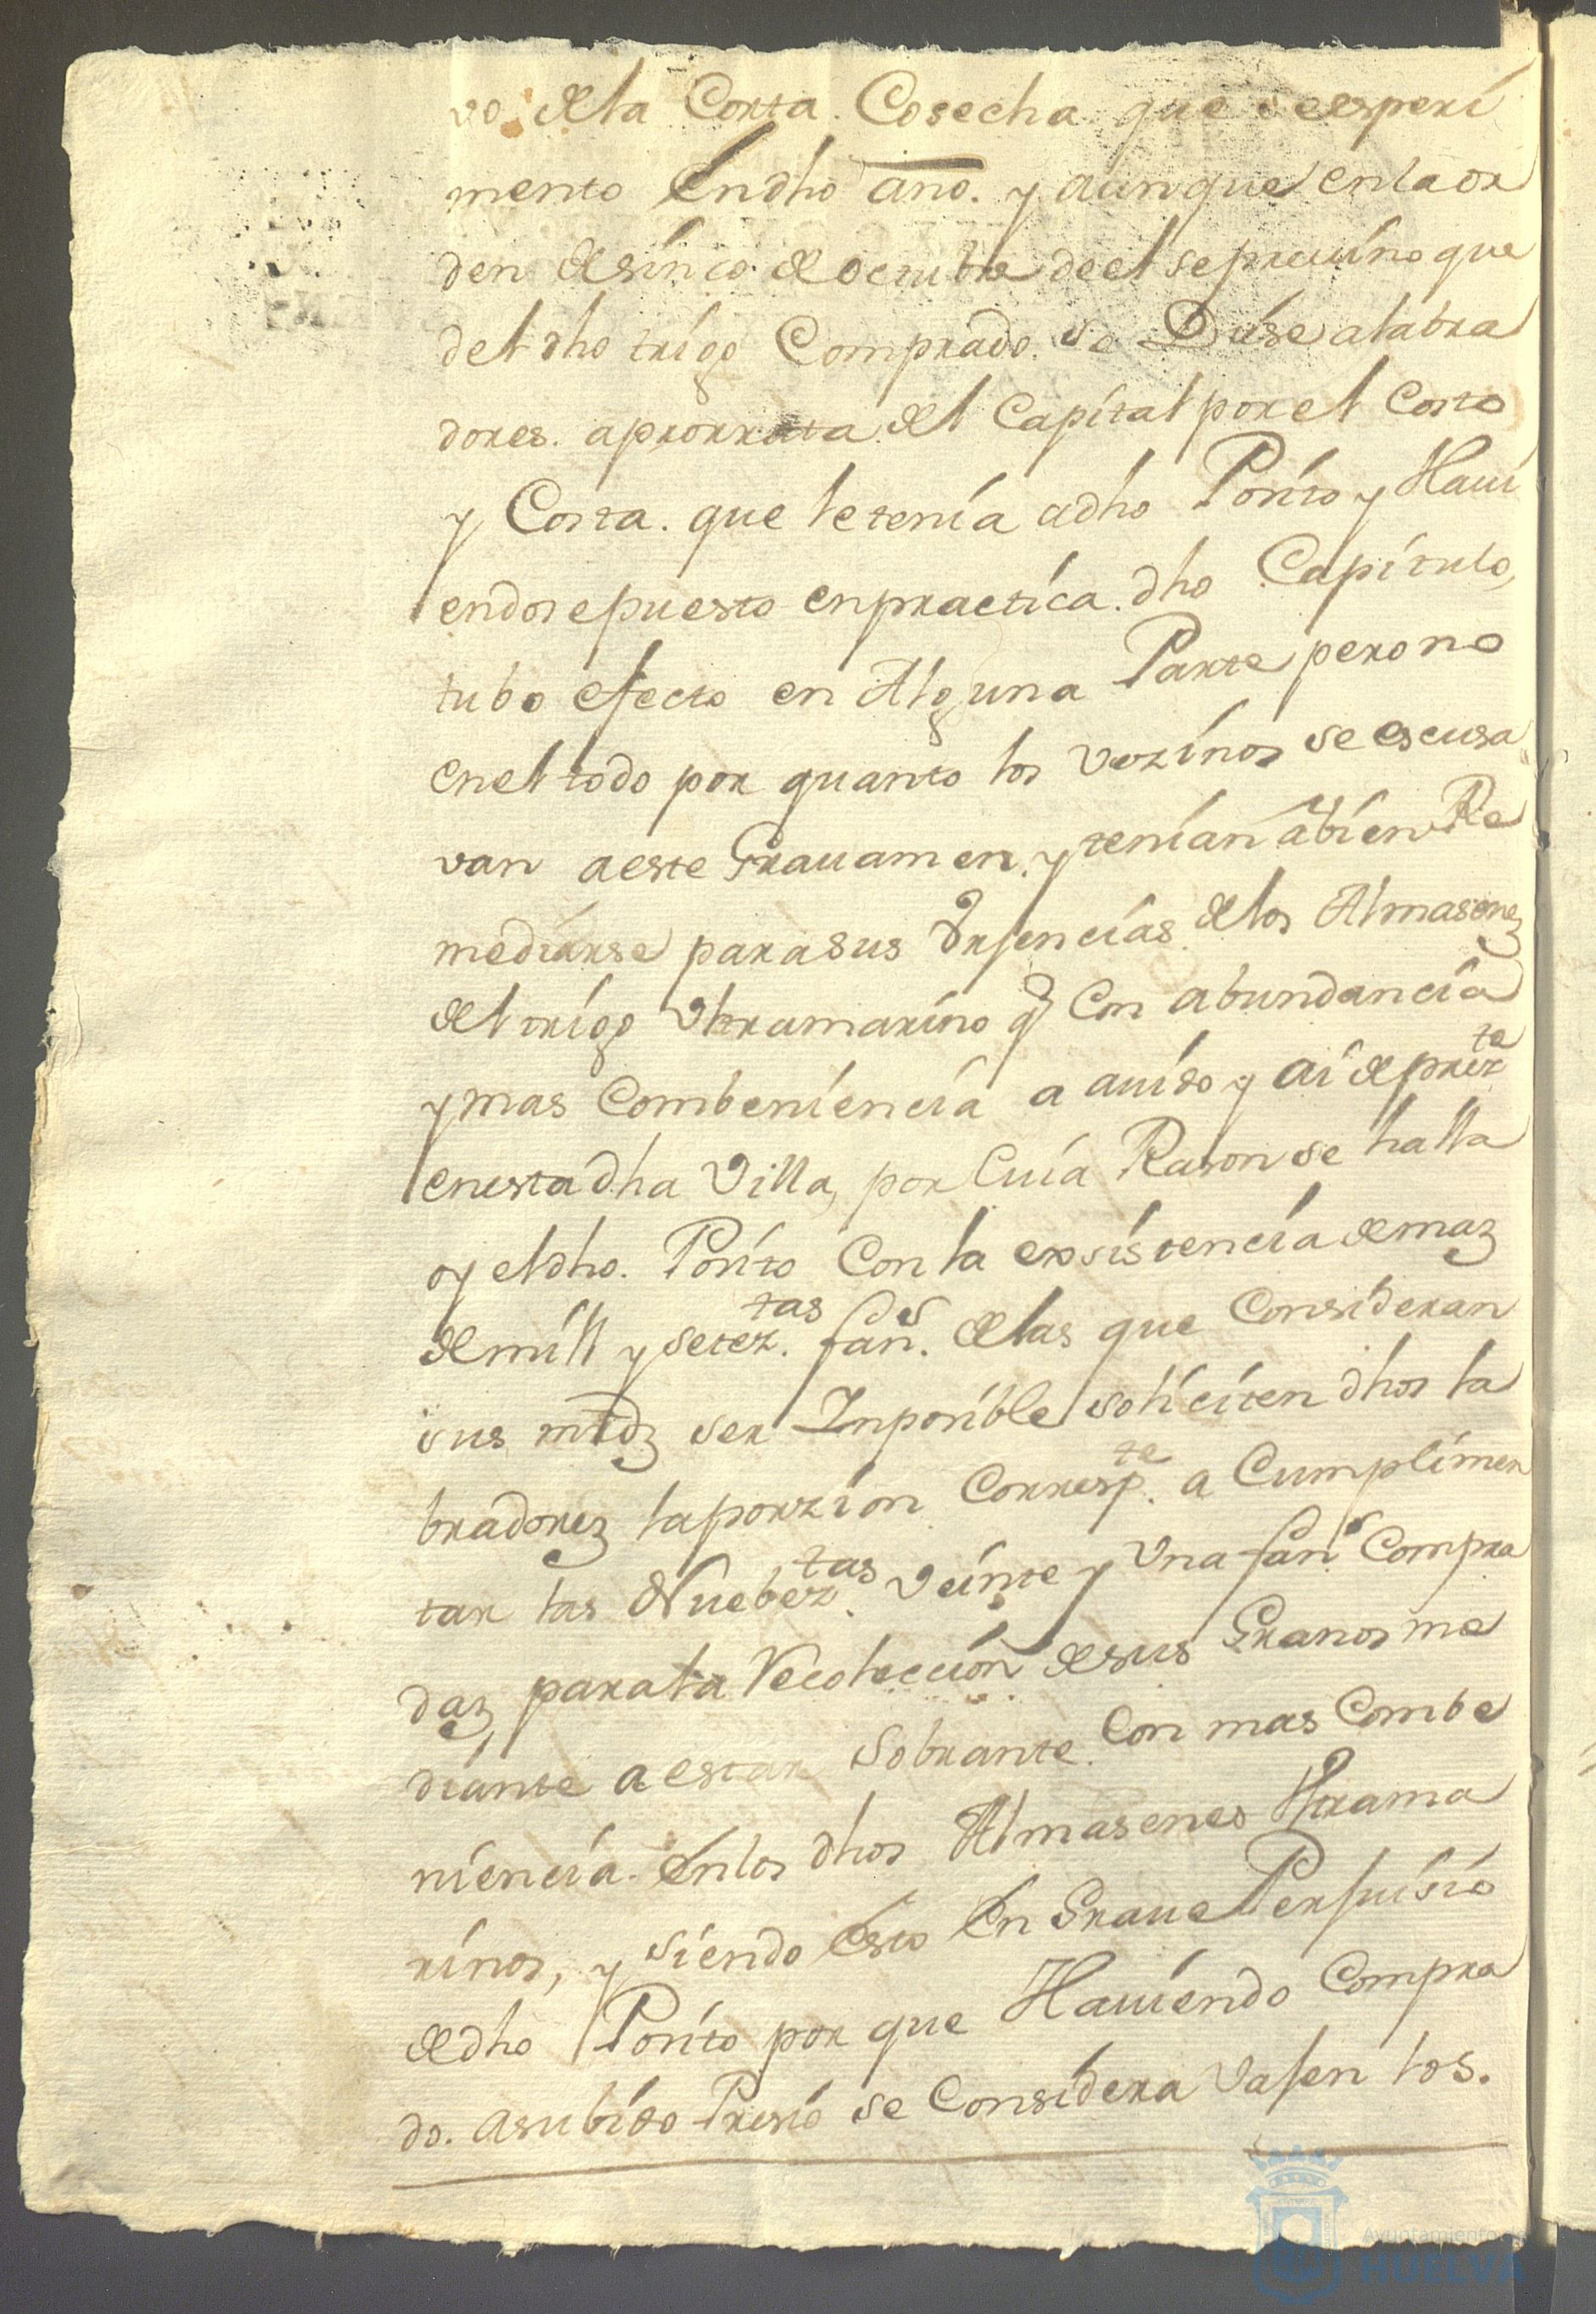 vo. de la Corta Cosecha que se esperi
mento en dho año. y aunque en la or
den de sinco de octubre de el se previno que
del dho trigo Comprado. se Diese a labra
dores. aprorrata del Capital por el Costo
y Costa. que le tenia a dho Posito y Havi
endose puesto en practica. dho Capitulo,
tubo efecto en Alguna Parte pero no
en el todo por quanto los vezinos se escusa
van a este Gravamen. y tenian a bien Re
mediarse para sus Urjencias de los Almasenes
del trigo Ultramarino q Con abundancia
y mas Combeniencia a avido y ai de prte
en esta dha Villa, por Cuia Rason se halla
oy el dho. Posito Con la exsistencia de mas
de mill y setez.tas fans. de las que Consideran
sus mrds ser Inposible soliciten dhos la
bradores la porzion Corresp.te a Cumplimen
tar las Nuebez.tas veinte y Una fans Compra
das, para la Recoleccion de sus Granos me
diante a estar Sobrante. Con mas Combe
niencia. en los dhos Almasenes Ultrama
rinos, y siendo esto en Grave Perjuisio
de dho Posito por que Haviendo Compra
do. a subido Presio se Considera vajen los.
Ayuntamiento de
HUELVA